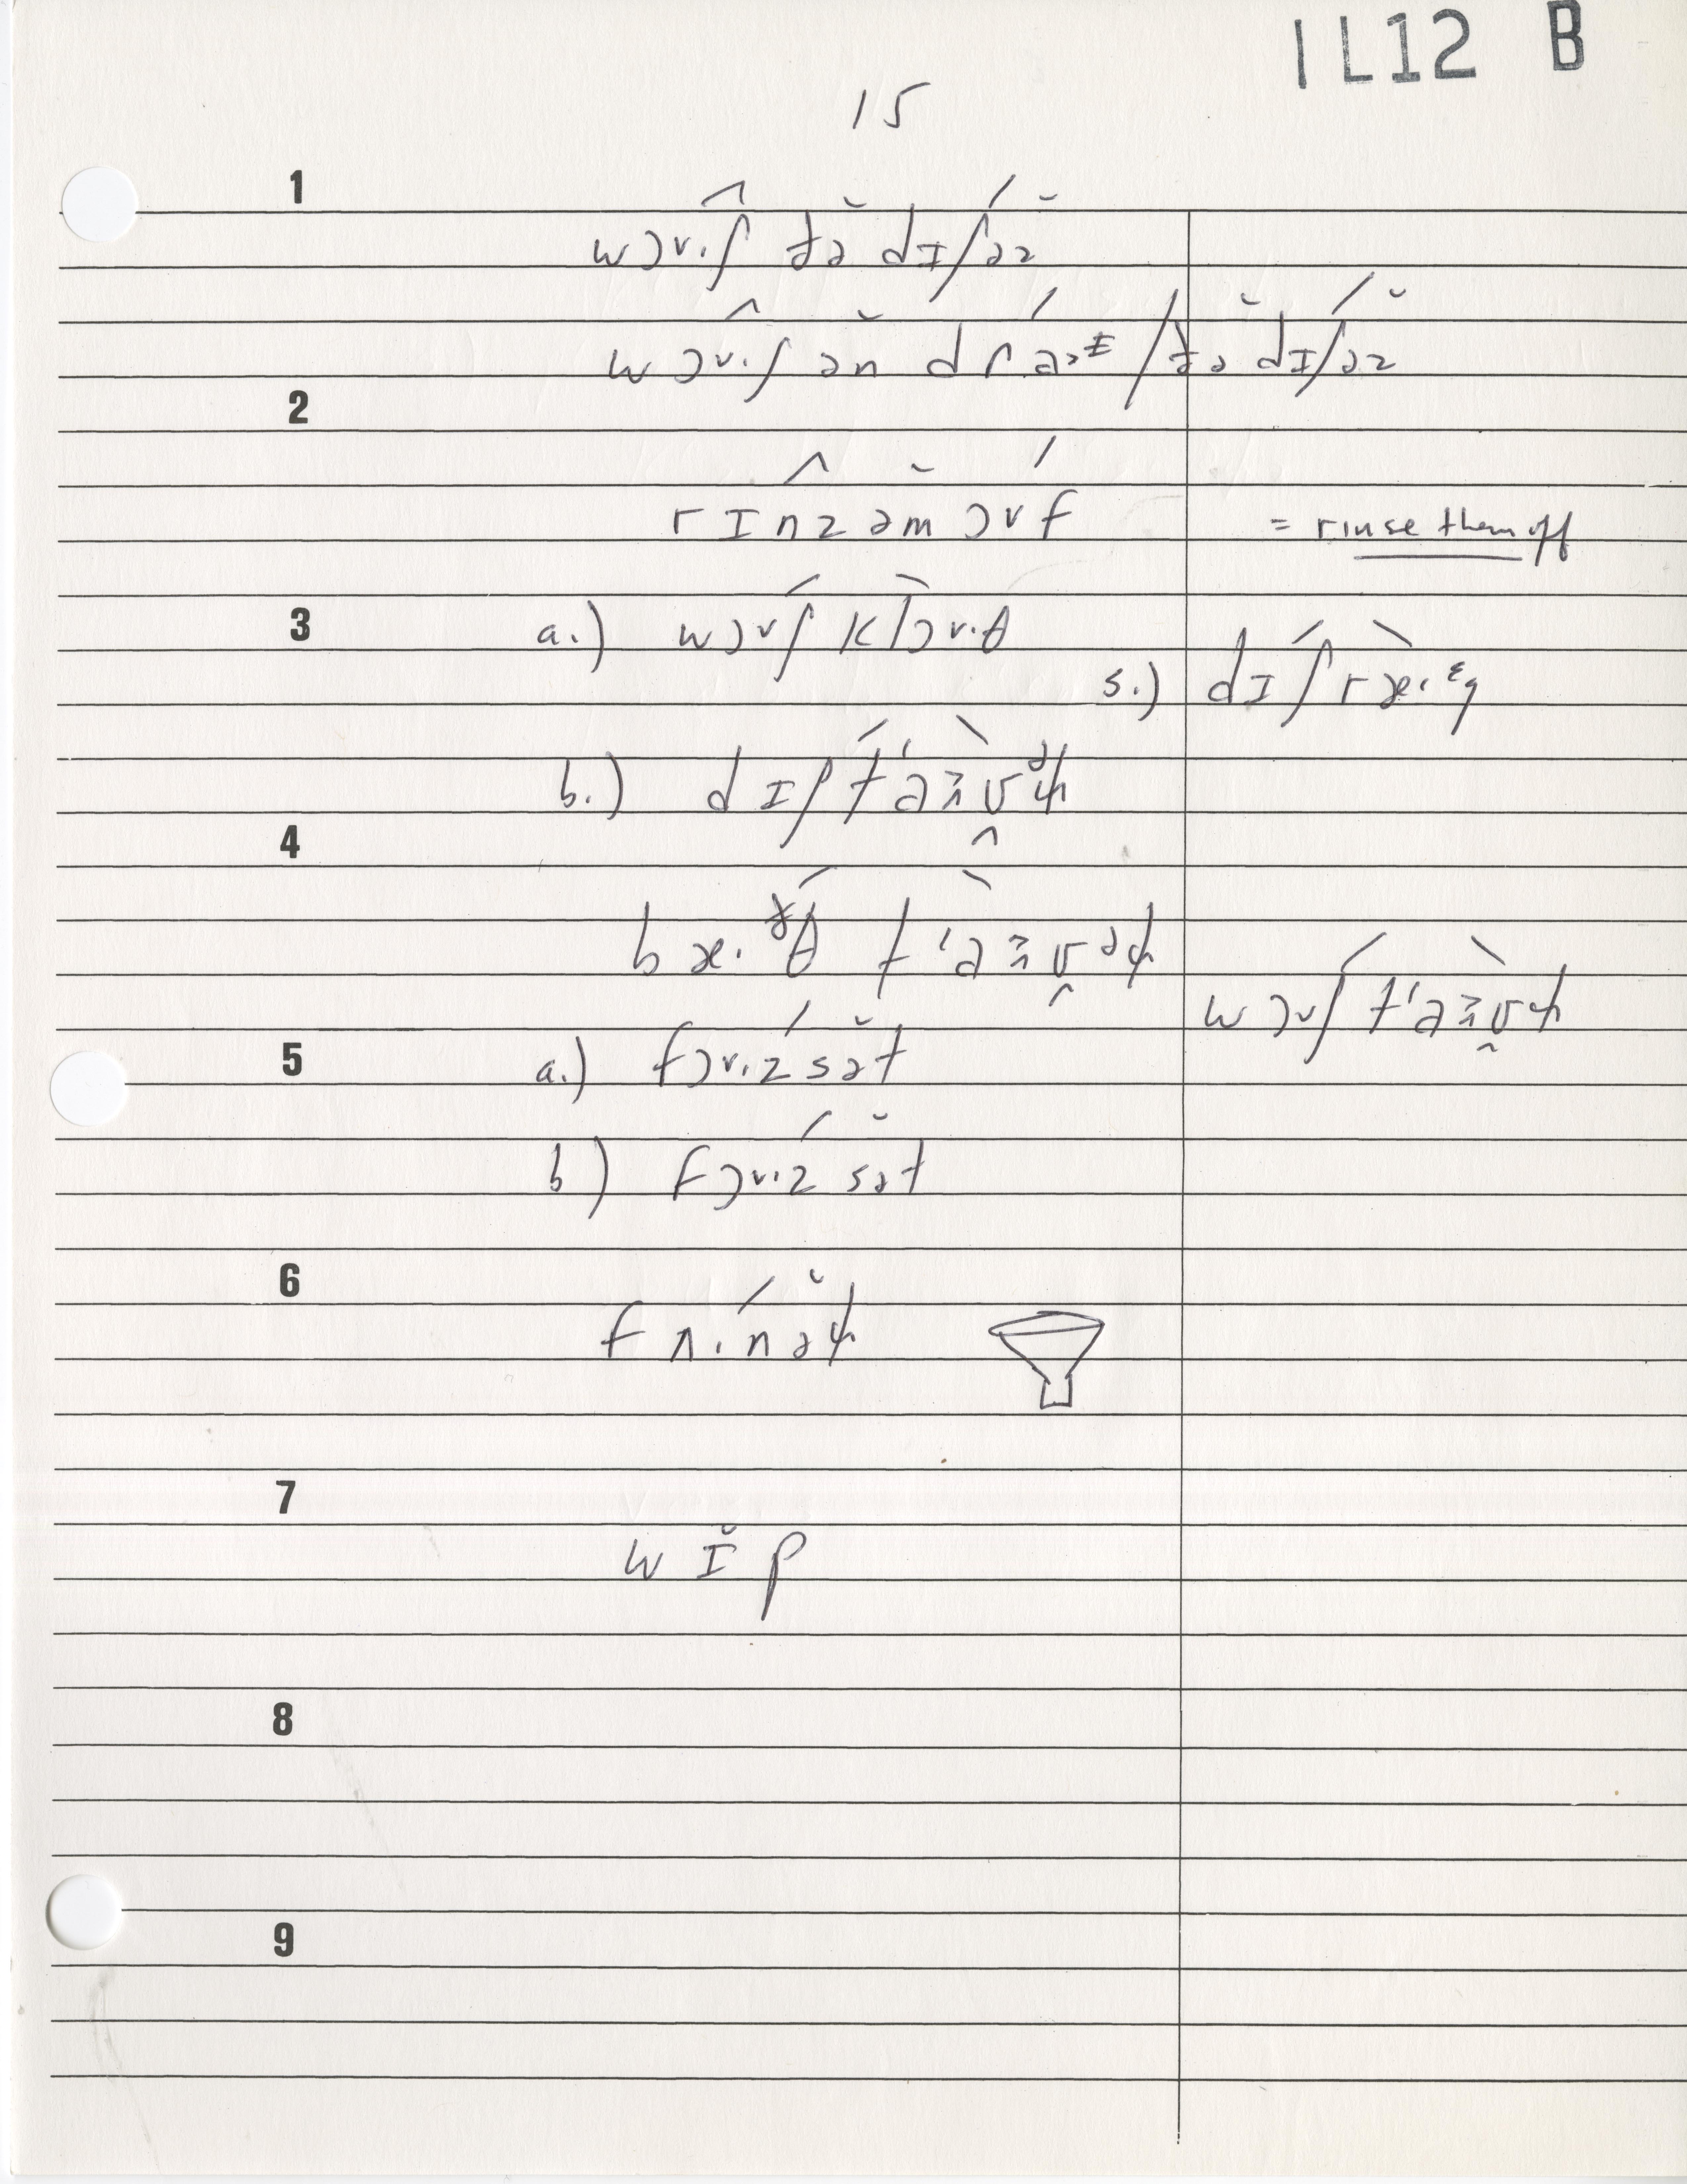 1L12 B
15
1
wɔv.ʃ ðə dɪʃəz
wɔv.ʃ ən draəᵻ / ðə dɪʃəz
2
rɪnz əm ɔvf = rinse them off
3
a.) wɔvʃ klɔv.θ
s.) dɪʃ ræ.ᵋg
b.) dɪʃ t'aɪ̯ʊᵊɫ
4
bæ.ᶞθ t'aɪ̯ʊᵊɫ
wɔvʃ t'aɪ̯ʊɫ
5
a.) fɔv.z sət
b) fɔv.z sət
6
fʌ.nəɫ
7
wɪp
8
9